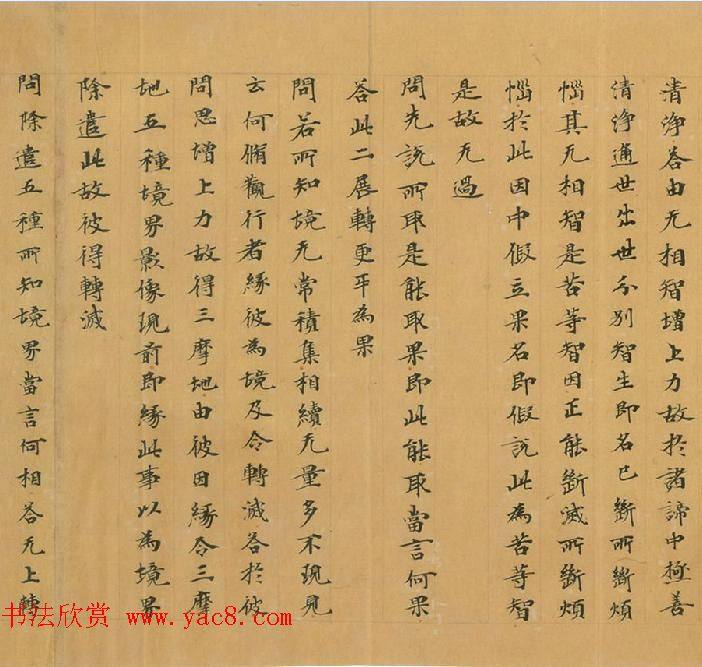 清淨答由无相智增上力故於諸諦中極善
清淨通世出世分別智生即名已斷所斷煩
惱其无相智是苦等智因正能斷滅所斷煩
惱於此因中假立果名即假說此為苦等智
是故无過
問先說所取是能取果即此能取當言何果
答此二展轉更互為果
問若所知境无常積集相續无量多不現見
云何脩觀行者緣彼為境及令轉滅答於彼
問思增上力故得三摩地由彼因緣令三摩
地五種境界影像現前即緣此事以為境界
除遣此故彼得轉滅
問除遣五種所知境界當言何相答无上轉
书法欣赏 www.yac8.com